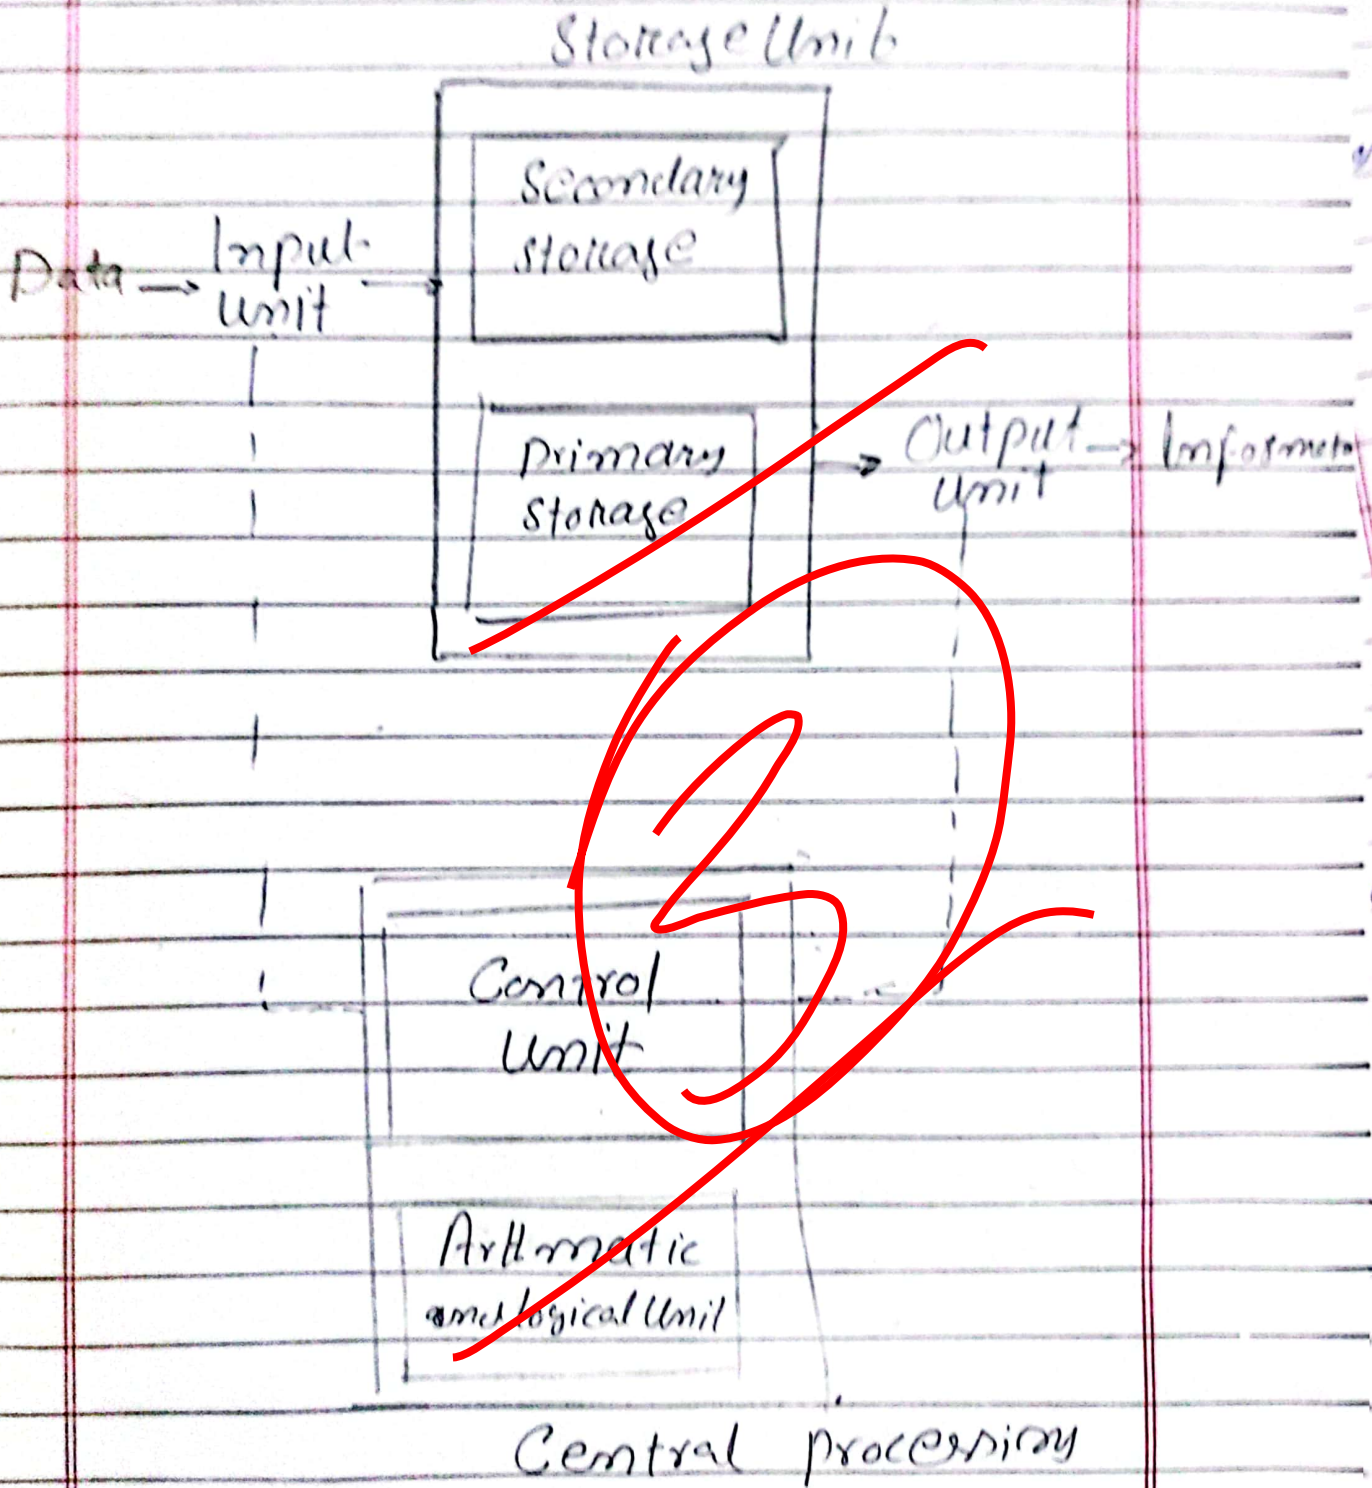 Storage Unit
Secondary
storage
Data → Input
unit
Primary
storage
Output → Informatio
unit
3
Control
Unit
Arttmatic
and logical Unit
Central processing